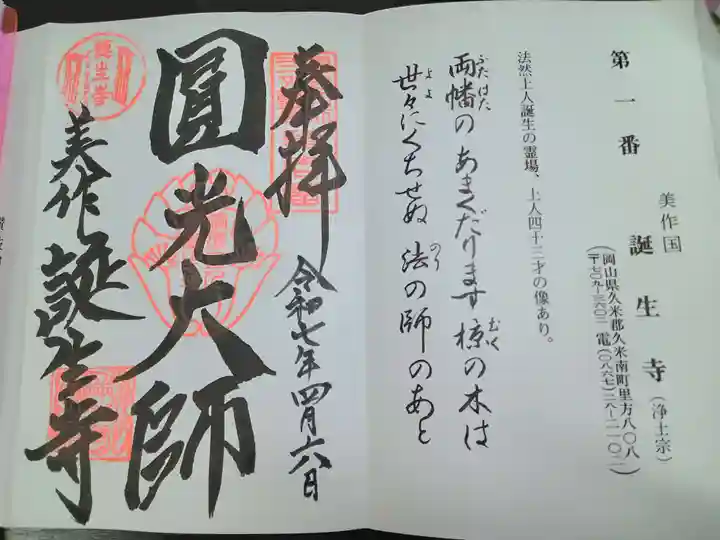 第一番
美作国
誕生寺(浄土宗)
(岡山県久米郡久米南町里方八〇八
〒七〇九-三六〇二 電(〇八六七)二八-二一〇二)
法然上人誕生の霊場、上人四十三才の像あり。
両幡のあまくだります椋の木は
ふたはた
むく
世々にくちせぬ法の師のあと
よよ
のり
奉拝
令和七年四月六日
圓光大師
美作
誕生寺